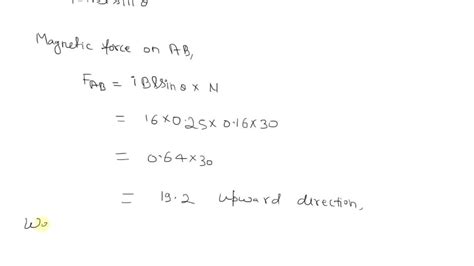 Magnetic force on AB,
F_AB = iBlsinθ × N
= 16×0.25×0.16×30
= 0.64×30
= 19.2 upward direction,